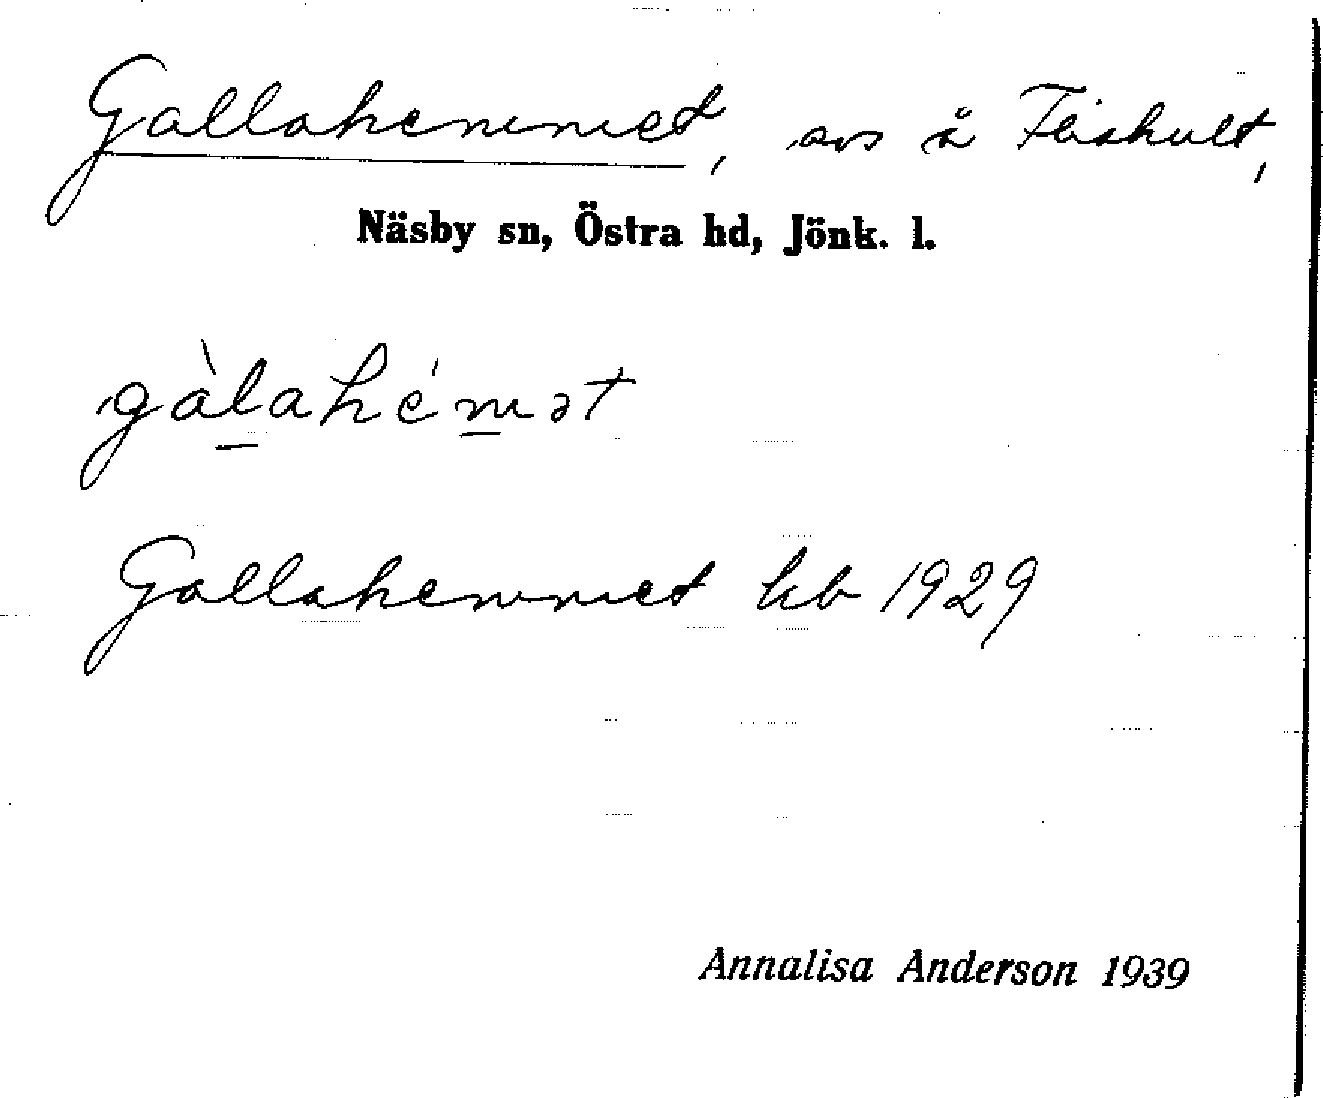 Gallahemmet, avs å Fliahult,
Näsby sn, Östra hd, Jönk. l.
gàlahémət
Gallahemmet hb 1929
Annalisa Anderson 1939